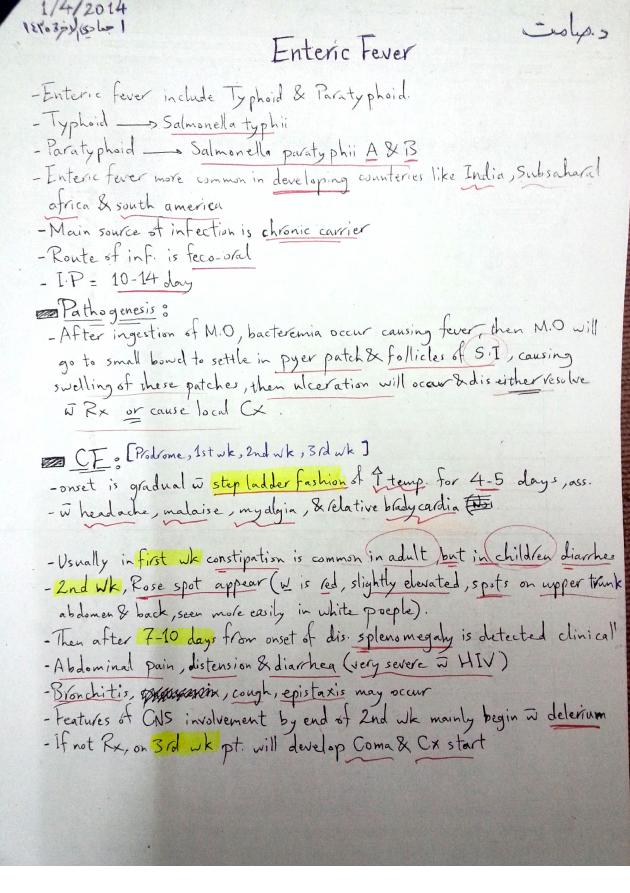 1/4/2014
د. صامت
Enteric Fever
- Enteric fever include Typhoid & Paratyphoid.
- Typhoid → Salmonella typhii
- Paratyphoid → Salmonella paratyphii A & B
- Enteric fever more common in developing counteries like India, Subsaharal
africa & south america
- Main source of infection is chronic carrier
- Route of inf. is feco-oral
- I.P = 10-14 day
Pathogenesis:
- After ingestion of M.O, bacteremia occur causing fever, then M.O will
go to small bowel to settle in pyer patch & follicles of S.I, causing
swelling of these patches, then ulceration will occur & dis either resolve
w̄ Rx or cause local Cx.
CF: [Prodrome, 1st wk, 2nd wk, 3rd wk]
- onset is gradual w̄ step ladder fashion of ↑ temp. for 4-5 days, ass.
- w̄ headache, malaise, myalgia, & relative bradycardia
- Usually in first wk constipation is common in adult, but in children diarrhea
- 2nd wk, Rose spot appear (w is red, slightly elevated, spots on upper trunk
abdomen & back, seen more easily in white poeple).
- Then after 7-10 days from onset of dis. splenomegaly is detected clinical
- Abdominal pain, distension & diarrhea (very severe w̄ HIV)
- Bronchitis, cough, epistaxis may occur
- Features of CNS involvement by end of 2nd wk mainly begin w̄ delerium
- If not Rx, on 3rd wk pt. will develop Coma & Cx start